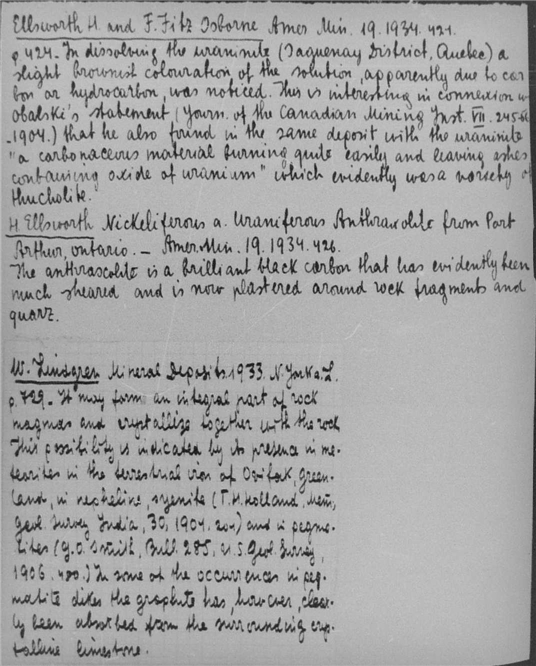 Ellsworth H. and F. Fitz Osborne Amer Min. 19. 1934. 421.
p 424. In dissolving the uraninite (Saguenay District, Quebec) a
slight brownish colouration of the solution, apparently due to car
bon or hydrocarbon, was noticed. This is interesting in connexion w
Obalski's statement (Journ. of the Canadian Mining Inst. VII. 245-
-1904.) that he also found in the same deposit with the uraninite
"a carbonaceous material burning quite easily and leaving ashes
containing oxide of uranium" which evidently was a variety of
thucholite.
H. Ellsworth Nickeliferous a. Uraniferous Anthraxolite from Port
Arthur, Ontario. – Amer. Min. 19. 1934. 426.
The anthraxolite is a brilliant black carbon that has evidently been
much sheared and is now plastered around rock fragments and
quartz.
W. Lindgren Mineral Deposits. 1933. N. York a. L.
p. 729. It may form an integral part of rock
magmas and crystallize together with the rock
This possibility is indicated by its presence in me-
teorites in the terrestrial iron of Ovifak, Green-
land, in nepheline, syenite (T. H. Holland, Mem,
geol. Survey India, 30, 1904. 201) and in pegma-
tites (G. O. Smith, Bull. 285, U. S. Geol. Survey,
1906. 480.) In some of the occurrences in peg-
matite dikes the graphite has, however, clear-
ly been absorbed from the surrounding crys-
talline limestone.